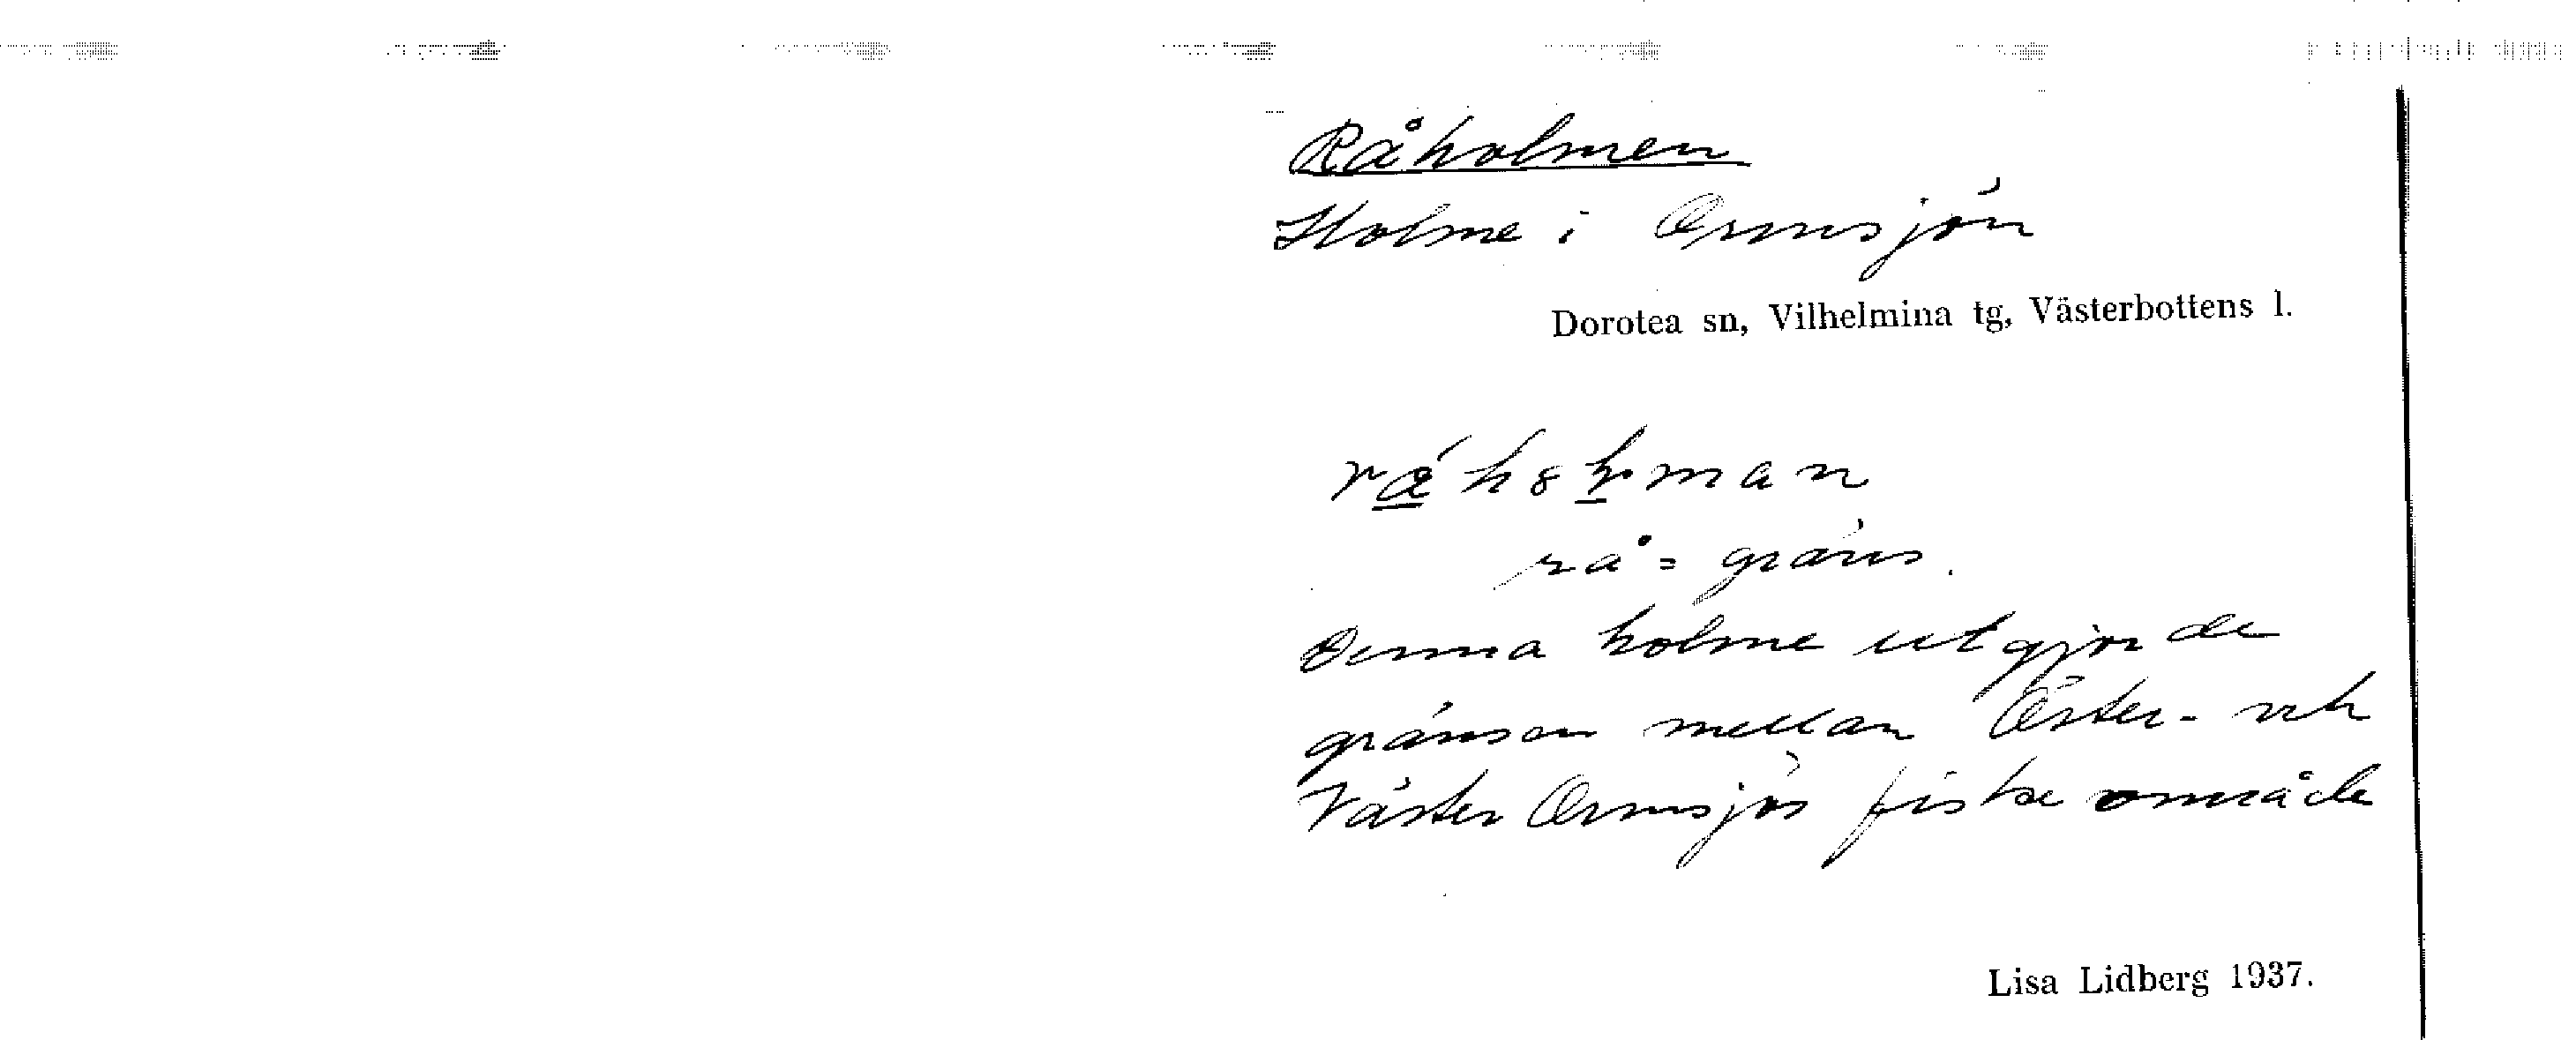 Råholmen
Holme i Ormsjön
Dorotea sn, Vilhelmina tg, Västerbottens l.
rå = gräns.
Denna holme utgjorde
gränsen mellan Öster- och
Väster Ormsjös fiskeområde
Lisa Lidberg 1937.